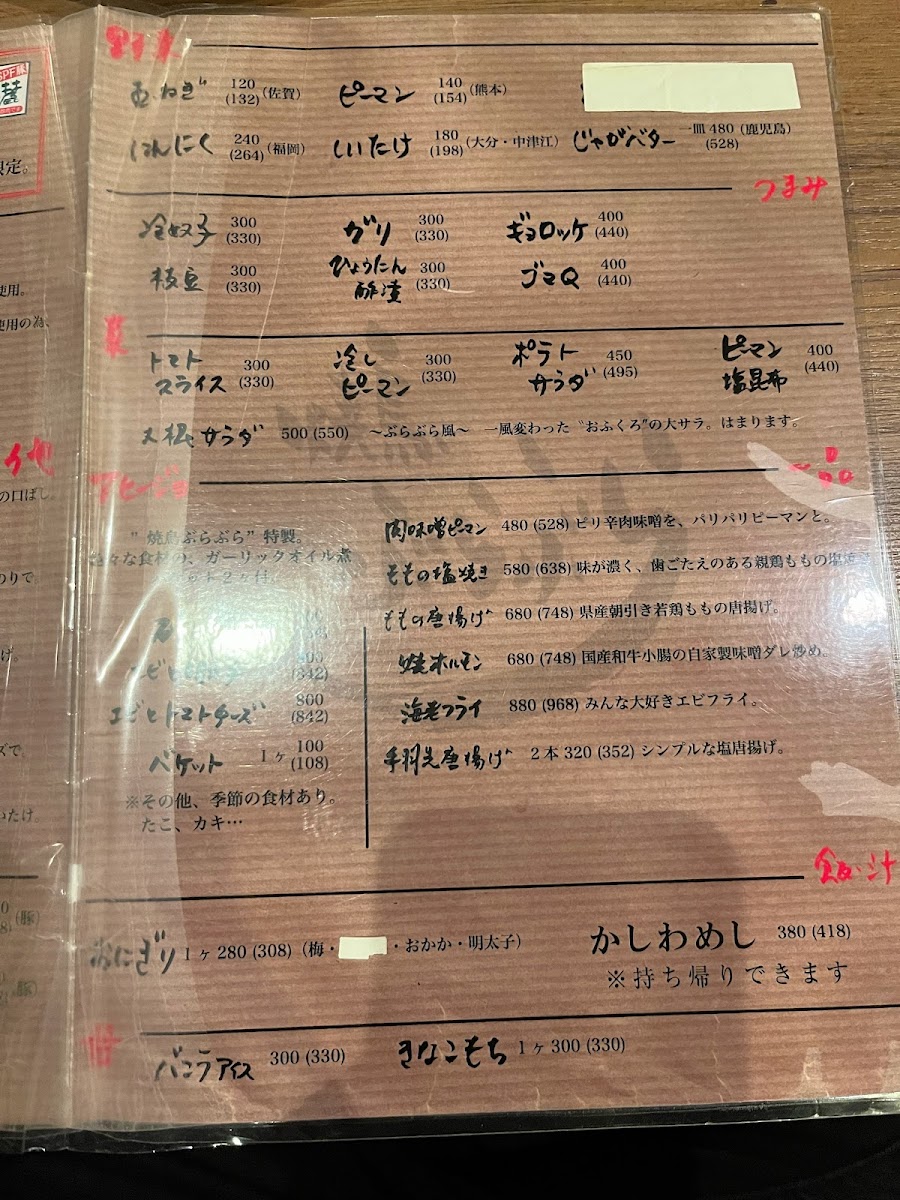 玉ねぎ 120 (132) (佐賀) ピーマン 140 (154) (熊本)
にんにく 240 (264) (福岡) しいたけ 180 (198) (大分・中津江) じゃがバター 一皿 480 (鹿児島) (528)
つまみ
冷奴子 300 (330) ガリ 300 (330) ギョロッケ 400 (440)
枝豆 300 (330) ひょうたん酢漬 300 (330) ゴマQ 400 (440)
菜
トマトスライス 300 (330) 冷しピーマン 300 (330) ポテトサラダ 450 (495) ピーマン塩昆布 400 (440)
大根サラダ 500 (550) 〜ぶらぶら風〜 一風変わった“おふくろ”の大サラ。はまります。
アヒージョ
”焼鳥ぶらぶら”特製。
ガーリックオイル煮
(842)
エビとトマトチーズ 800 (842)
バケット 1ヶ 100 (108)
※その他、季節の食材あり。
たこ、カキ…
一品
肉味噌ピーマン 480 (528) ピリ辛肉味噌を、パリパリピーマンと。
ももの塩焼き 580 (638) 味が濃く、歯ごたえのある親鶏ももの塩焼
ももの唐揚げ 680 (748) 県産朝引き若鶏ももの唐揚げ。
焼ホルモン 680 (748) 国産和牛小腸の自家製味噌ダレ炒め。
海老フライ 880 (968) みんな大好きエビフライ。
手羽先唐揚げ 2本 320 (352) シンプルな塩唐揚げ。
飯・汁
おにぎり 1ヶ 280 (308) (梅・ ・おかか・明太子)
かしわめし 380 (418)
※持ち帰りできます
甘
バニラアイス 300 (330) きなこもち 1ヶ 300 (330)
限定。
使用。
使用の為、
他
の口ばし
のりで
げ。
ズで
いたけ
(豚)
(豚)